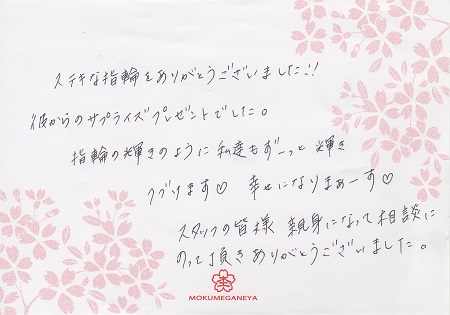 ステキな指輪をありがとうございました!!
彼からのサプライズプレゼントでした。
指輪の輝きのように私達もずーっと輝き
つづけます♡ 幸せになりまぁーす♡
スタッフの皆様 親身になって相談に
のって頂きありがとうございました。
MOKUMEGANEYA